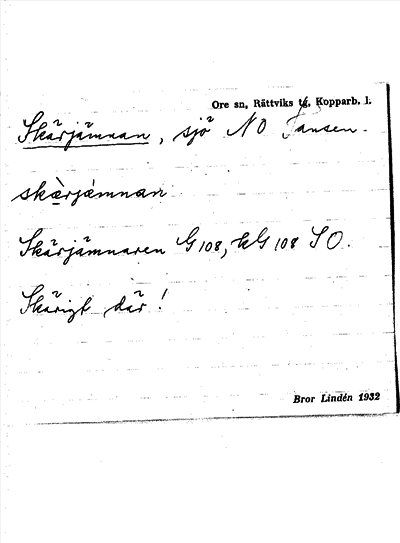 Ore sn, Rättviks tg, Kopparb. l.
Skärjämnan, sjö NO Jansen.
skæ̀rjämnan
Skärjämnaren G 108, EG 108 SO.
Skärigt där!
Bror Lindén 1932